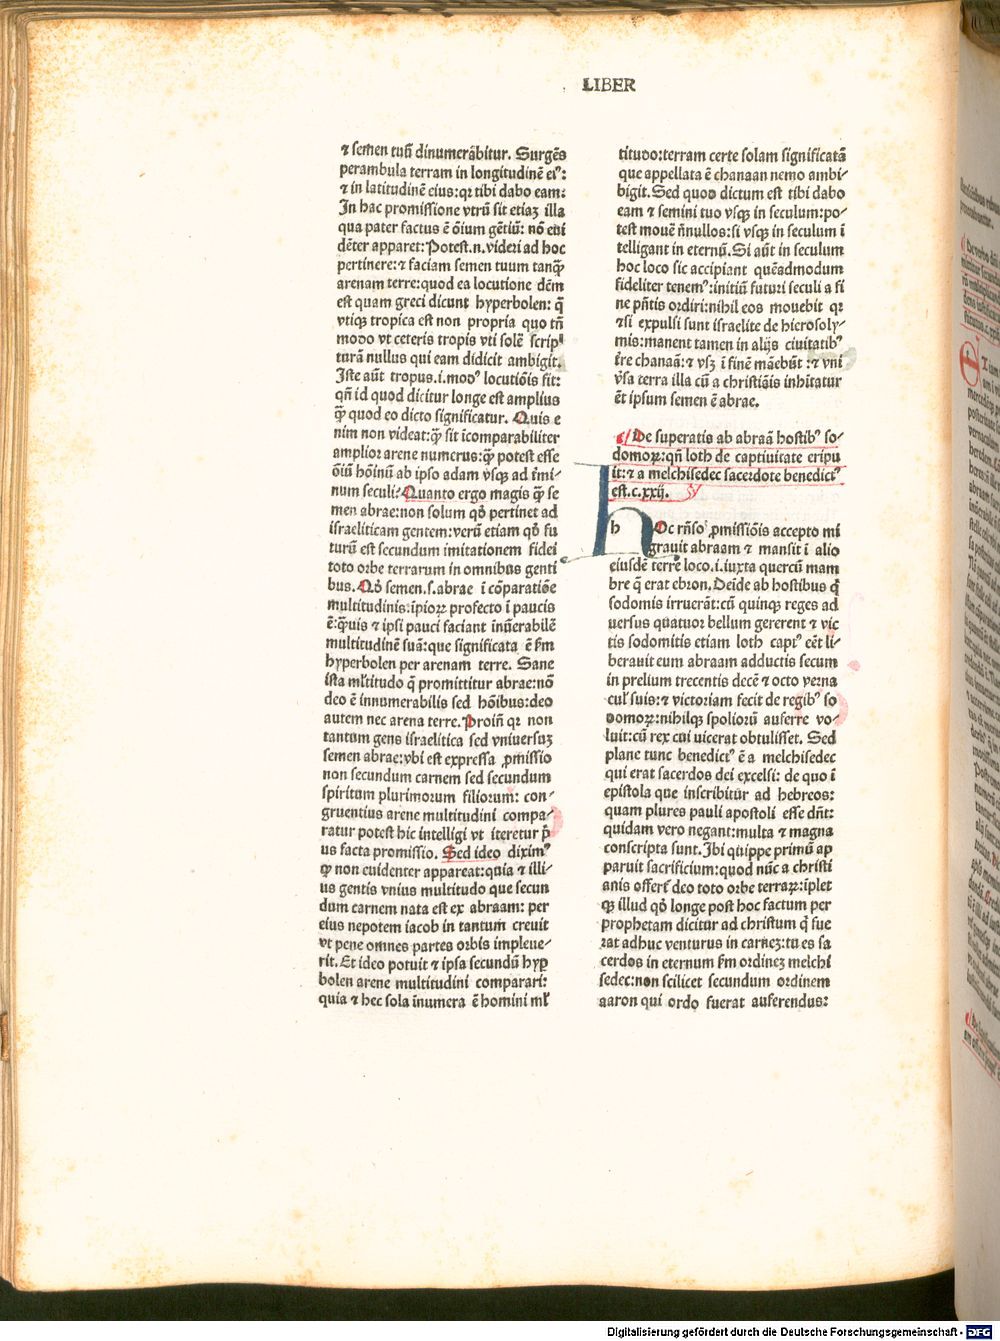 LIBER
⁊ semen tuū dinumerābitur. Surgēs
perambula terram in longitudinē eiꝰ:
⁊ in latitudinē eius: qꝛ tibi dabo eam:
In hac promissione vtrū sit etiaꝫ illa
qua pater factus ē oīum gētiū: nō eui
dēter apparet: Potest .n. videri ad hoc
pertinere: ⁊ faciam semen tuum tanqȝ
arenam terre: quod ea locutione dēm
est quam greci dicunt hyperbolen: q̄
vtiqꝫ tropica est non propria quo tn̄
modo vt ceteris tropis vti solē scrip
turā nullus qui eam didicit ambigit.
Iste aūt tropus .i. modꝰ locutiōis fit:
qn̄ id quod dicitur longe est amplius
qȝ quod eo dicto significatur. Quis e
nim non videat: qȝ sit īcomparabiliter
amplior arene numerus: qȝ potest esse
oīū hoīnū ab ipso adam vsqꝫ ad t̄mi⸗
num seculi? Quanto ergo magis qȝ se
men abrae: non solum qd̄ pertinet ad
israeliticam gentem: verū etiam qd̄ fu
turū est secundum imitationem fidei
toto orbe terrarum in omnibus genti
bus. Qd̄ semen .s. abrae ī cōparatiōe
multitudinis īpioꝝ profecto ī paucis
ē: qȝuis ⁊ ipsi pauci faciant īnūerabilē
multitudinē suā: que significata ē ẜm
hyperbolen per arenam terre. Sane
ista ml̄titudo q̄ promittitur abrae: nō
deo ē innumerabilis sed hōibus: deo
autem nec arena terre. Proin̄ qꝛ non
tantum gens israelitica sed vniuersaꝫ
semen abrae: vbi est expressa ꝓmissio
non secundum carnem sed secundum
spiritum plurimorum filiorum: con⸗
gruentius arene multitudini compa⸗
ratur potest hic intelligi vt iteretur p̄
us facta promissio. Sed ideo diximꝰ
qȝ non euidenter appareat: quia ⁊ illi⸗
us gentis vnius multitudo que secun
dum carnem nata est ex abraam: per
eius nepotem iacob in tantum creuit
vt pene omnes partes orbis impleue⸗
rit. Et ideo potuit ⁊ ipsa secundū hyꝑ
bolen arene multitudini comparari:
quia ⁊ hec sola īnumera ē homini ml̄
titudo: terram certe solam significatā
que appellata ē chanaan nemo ambi⸗
bigit. Sed quod dictum est tibi dabo
eam ⁊ semini tuo vsqꝫ in seculum: po⸗
test mouē n̄nullos: si vsqꝫ in seculum ī
telligant in eternū. Si aūt in seculum
hoc loco sic accipiant quēadmodum
fideliter tenemꝰ: initiū futuri seculi a fi
ne pn̄tis ordiri: nihil eos mouebit qꝛ
⁊si expulsi sunt israelite de hierosoly⸗
mis: manent tamen in alijs ciuitatibꝰ
t̄re chanaā: ⁊ vsqꝫ ī finē māebūt: ⁊ vni
v̄sa terra illa cū a christiāis inhītatur
ēt ipsum semen ē abrae.
De superatis ab abraā hostibꝰ so⸗
domoꝝ: qn̄ loth de captiuitate eripu
it: ⁊ a melchisedec sacerdote benedictꝰ
est. c. xxij.
h Oc rn̄so ꝓmissiōis accepto mi
grauit abraam ⁊ mansit ī alio
eiusdē terre loco .i. iuxta quercū mam
bre q̄ erat ebron. Deīde ab hostibus q̄
sodomis irruerāt: cū quinqꝫ reges ad
uersus quatuor bellum gererent ⁊ vic
tis sodomitis etiam loth captꝰ eēt li⸗
berauit eum abraam adductis secum
in prelium trecentis decē ⁊ octo verna
cul̄ suis: ⁊ victoriam fecit de regibꝰ so
domoꝝ: nihilqꝫ spoliorū auferre vo⸗
luit: cū rex cui uicerat obtulisset. Sed
plane tunc benedictꝰ ē a melchisedec
qui erat sacerdos dei excelsi: de quo ī
epistola que inscribitur ad hebreos:
quam plures pauli apostoli esse dn̄t:
quidam vero negant: multa ⁊ magna
conscripta sunt. Ibi quippe primū ap
paruit sacrificium: quod nūc a christi
anis offert̄ deo toto orbe terraꝝ: īplet
qꝫ illud qd̄ longe post hoc factum per
prophetam dicitur ad christum q̄ fue
rat adhuc venturus in carneꝫ: tu es sa
cerdos in eternum ẜm ordineꝫ melchi
sedec: non scilicet secundum ordinem
aaron qui ordo fuerat auferendus:
Digitalisierung gefördert durch die Deutsche Forschungsgemeinschaft - DFG